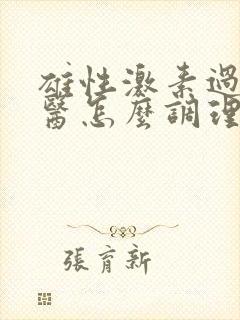 雄性激素過
醫怎麼調理
張育新